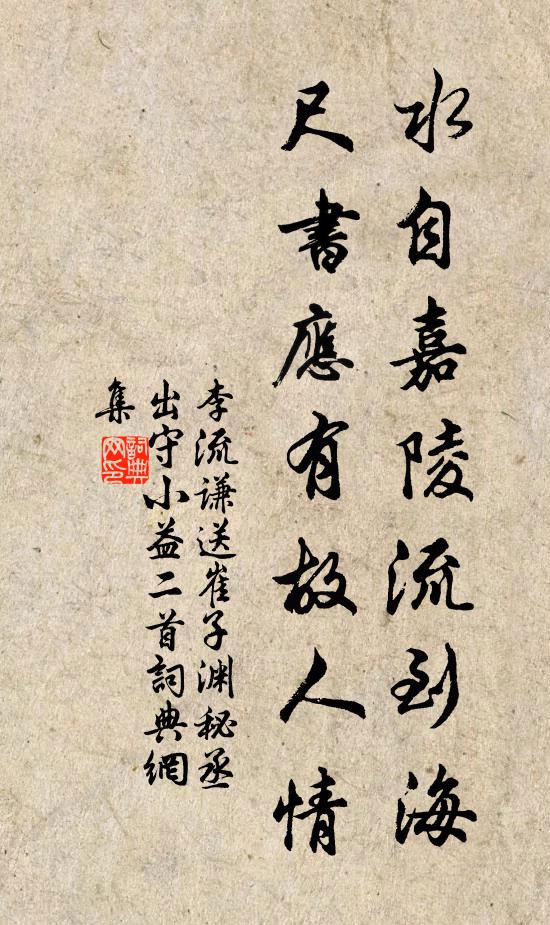 水自嘉陵流到海
尺書應有故人情
李流謙送崔子渊秘丞
出守小益二首詞典網
集
詞典
网印